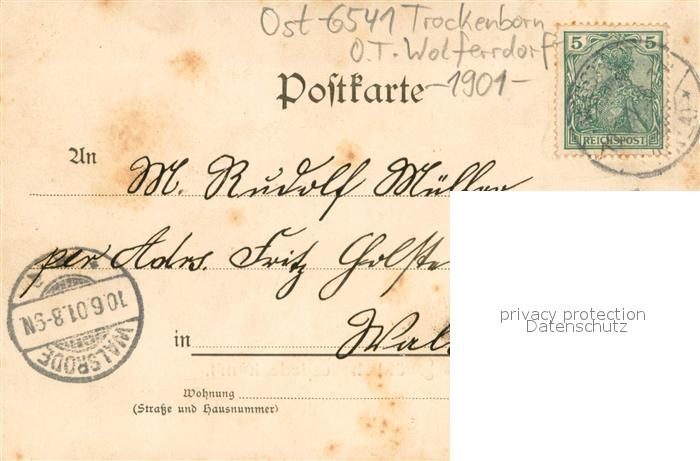 Ost-6541 Trockenborn
O.T. Wolferrdorf
-1901-
Postkarte
5 5
REICHSPOST
An
M. Rudolf Müller
per Adrs. Fritz Holste
10.6.01.8-9N
WALSRODE
in Wal
Wohnung
(Straße und Hausnummer)
privacy protection
Datenschutz